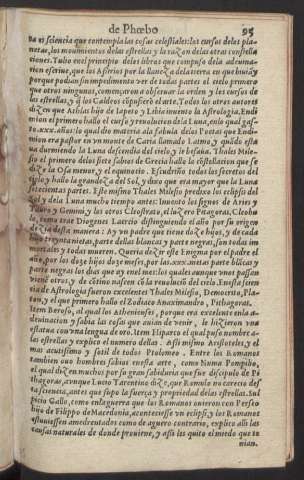 de Phœbo 95
va es sciencia que contempla las cosas celestiales: los cursos de los pla-
netas, los mouimientos de las estrellas y la razon de las otras constella
ciones. Tulio en el principio de los libros que compuso de la adeuina-
cion escriue, que los Asirios por la llaneza de la tierra en que biuiã, y
porque podian sin impedimento ver de todas partes el cielo primero
que otros ningunos, començaron a obseruar la orden y los cursos de
las estrellas, y q̃ los Caldeos cupusierõ el arte. Todos los otros autores
dizen que Athlas hijo de Iapeto y Lybie inuento la Astrologia. Endi
mion el primero hallo el curso y reuolucion de la Luna, en lo qual gas-
to .xxx. años: lo qual dio materia a la fabula de los Poetas que Endi-
mion era pastor en vn monte de Caria llamado Latmo, y quãdo esta
ua durmiendo la Luna descendia del cielo, y le besaua. Thales Mile-
sio el primero de los siete sabios de Grecia hallo la cõstellacion que se
dize la Osa menor, y el equinotio. Escudriño todos los secretos del
cielo y hallo la grandeza del Sol, y dixo que era mayor que la Luna
setecientas partes. Este mismo Thales Milesio predixo los eclipsis del
Sol y dela Luna mucho tiempo antes. Inuento los signos de Aries y
Tauro y Gemini, y los otros Cleostrato, el luzero Pitagoras, Cleobu
lo, como trae Diogenes Laercio distinguiendo el año por su origen
dezia desta manera: Ay vn padre que tiene doze hijos, y de cada
hijo treynta nietas, parte dellas blancas y parte negras, son todas im
mortales y todas mueren. Queria dezir este Enigma por el padre el
año, por los doze hijos doze meses, por las .xxx. nietas parte blācas y
parte negras los dias que ay en el mes: los quales aunque vnos passan
vienẽ otros, y de cõtino nascen cõ la reuoluciõ del cielo. En esta scien
cia de Astrologia fueron excelentes Thales Milesio, Democrito, Pla-
ton, y el que primero hallo el Zodiaco Anaximandro, Pithagoras.
Item Beroso, al qual los Athenienses, porque era excelente en la a-
deuinacion y sabia las cosas que auian de venir, le hizieron vna
estatua con vna lengua de oro. Item Hiparco el qual puso nombre a
las estrellas y explico el numero dellas. Assi mismo Aristoteles, y el
mas acutissimo y sutil de todos Ptolomeo. Entre los Romanos
tambien vuo hombres sabios en esta arte, como Numa Pompilio,
el qual dizen muchos por su gran sabiduria que fue discipulo de Pi
thagoras, aunque Lucio Tarentino dize, que Romulo no carecio des
ta sciencia, antes que supo la fuerça y propriedad de las estrellas. Sul
picio Gallo, como en la guerra que los Romanos tuuieron con Perseo
hijo de Filippo de Macedonia, aconteciesse vn eclipsi, y los Romanos
estuuiessen amedrentados como de aguero contrario, explico alli las
causas naturales de donde prouiene, y assi les quito el miedo que te
nian.